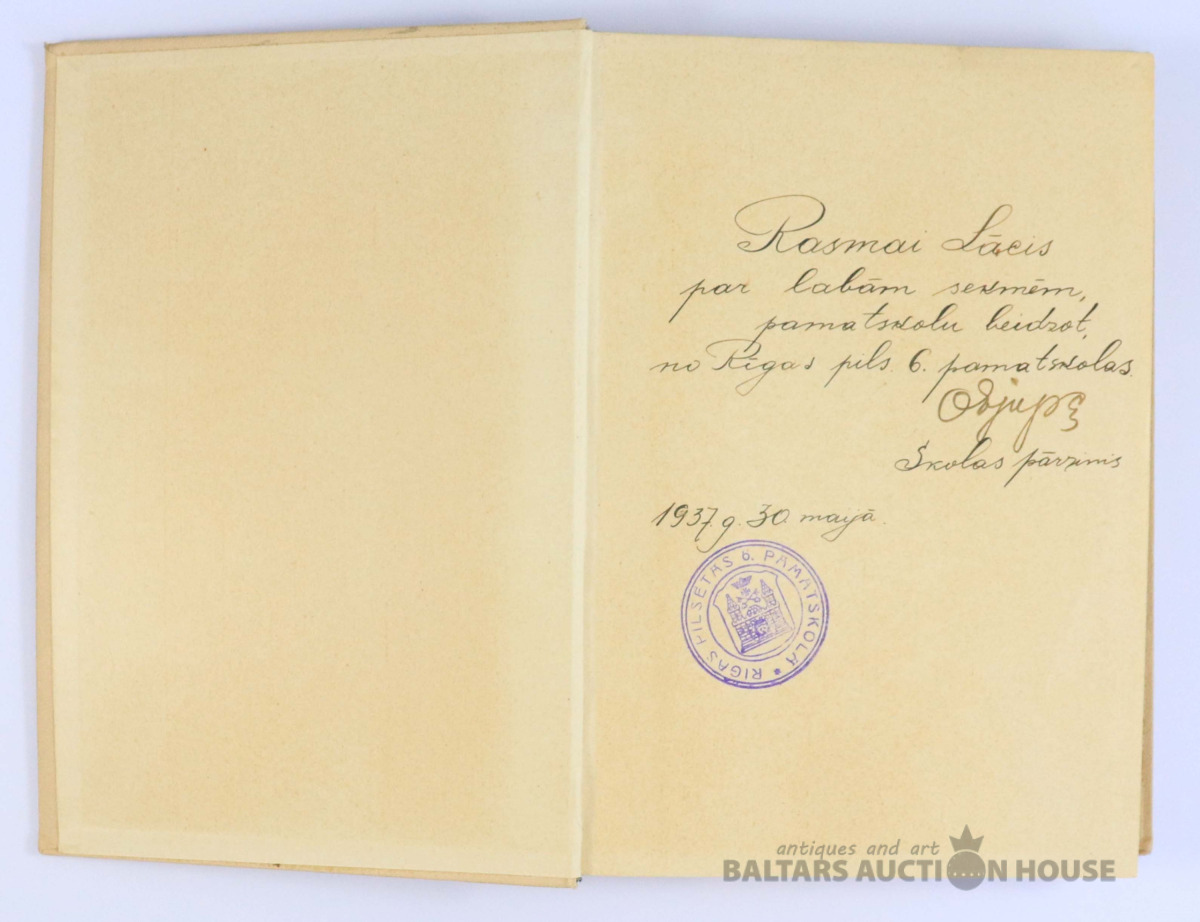 Rasmai Lācis
par labām sekmēm,
pamatskolu beidzot,
no Rīgas pils. 6. pamatskolas.
Skolas pārzinis
1937. g. 30. maijā.
RIGAS PILSĒTAS 6. PAMATSKOLA *
antiques and art
BALTARS AUCTION HOUSE